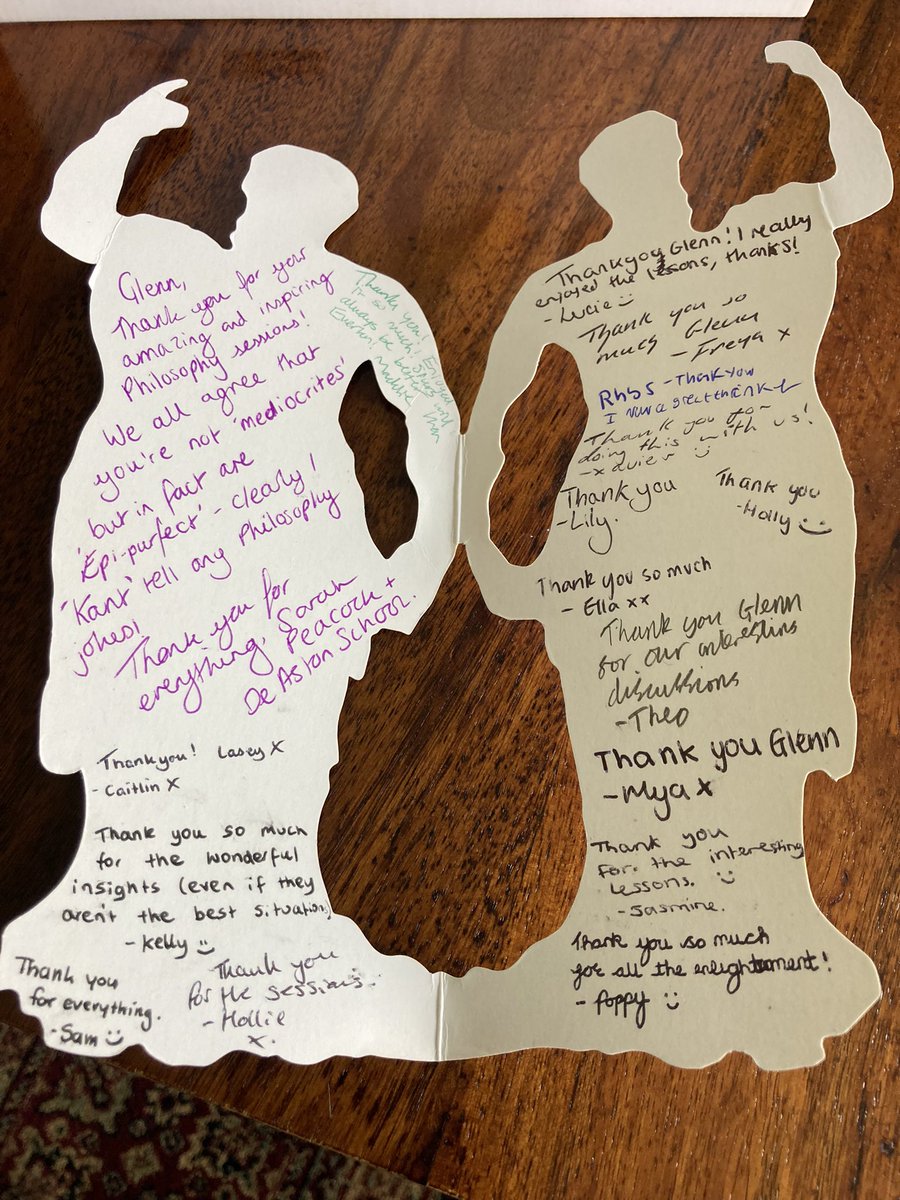 Glenn,
Thank you for your
amazing and inspiring
Philosophy sessions!
We all agree that
you're not 'mediocrites'
'but in fact are
'Epi-purfect' - clearly I
'Kant' tell any Philosophy
jokes!
Thank you for
everything, Sarah
Peacock +
De Aston School.
Thank you! Enjoyed
it so much! Spurs will
always be better than
Everton! Maddie
Thankyou! Lasey X
- Caitlin X
Thank you so much
for the wonderful
insights (even if they
aren't the best situation)
- Kelly
Thank you
for everything.
- Sam
Thank you
for the sessions.
- Hollie
x.
Thankyou Glenn! I really
enjoyed the lessons, thanks!
- Lucie
Thank you so
much Glenn
- Freya x
Rhbs - Thank you
Thank you for
doing this with us!
- Xavier
Thank you
- Lily.
Thank you
- Holly
Thank you so much
- Ella xx
Thank you Glenn
for our interesting
discussions
- Theo
Thank you Glenn
- Mya x
Thank you
for the interesting
lessons.
- Jasmine.
Thank you so much
for all the enlightenment!
- Poppy